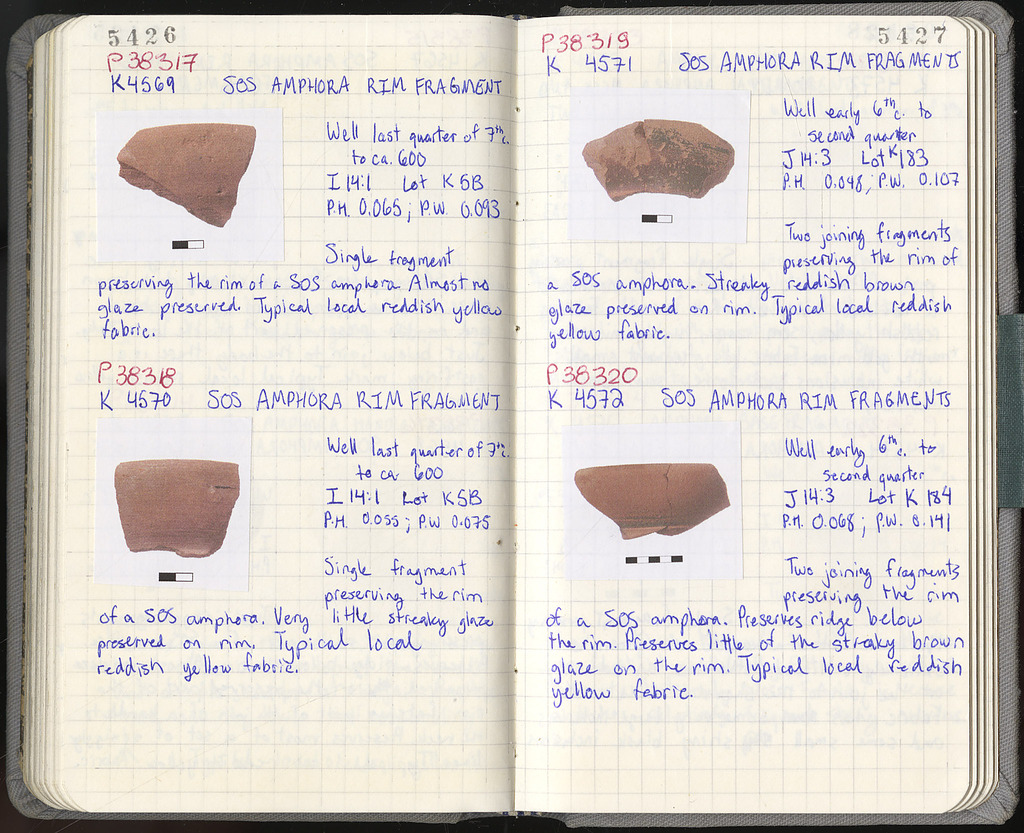 5426
P 38317
K 4569 SOS AMPHORA RIM FRAGMENT
Well last quarter of 7th c.
to ca. 600
I 14:1 Lot K 5B
P.H. 0.065; P.W. 0.093
Single fragment
preserving the rim of a SOS amphora Almost no
glaze preserved. Typical local reddish yellow
fabric.
P 38318
K 4570 SOS AMPHORA RIM FRAGMENT
Well last quarter of 7th c.
to ca 600
I 14:1 Lot K5B
P.H. 0.055; P.W 0.075
Single fragment
preserving the rim
of a SOS amphora. Very little streaky glaze
preserved on rim. Typical local
reddish yellow fabric.
5427
P 38319
K 4571 SOS AMPHORA RIM FRAGMENTS
Well early 6th c. to
second quarter
J 14:3 Lot K 183
P.H. 0.048; P.W. 0.107
Two joining fragments
preserving the rim of
a SOS amphora. Streaky reddish brown
glaze preserved on rim. Typical local reddish
yellow fabric.
P 38320
K 4572 SOS AMPHORA RIM FRAGMENTS
Well early 6th c. to
second quarter
J 14:3 Lot K 184
P.H. 0.068; P.W. 0.141
Two joining fragments
preserving the rim
of a SOS amphora. Preserves ridge below
the rim. Preserves little of the streaky brown
glaze on the rim. Typical local reddish
yellow fabric.